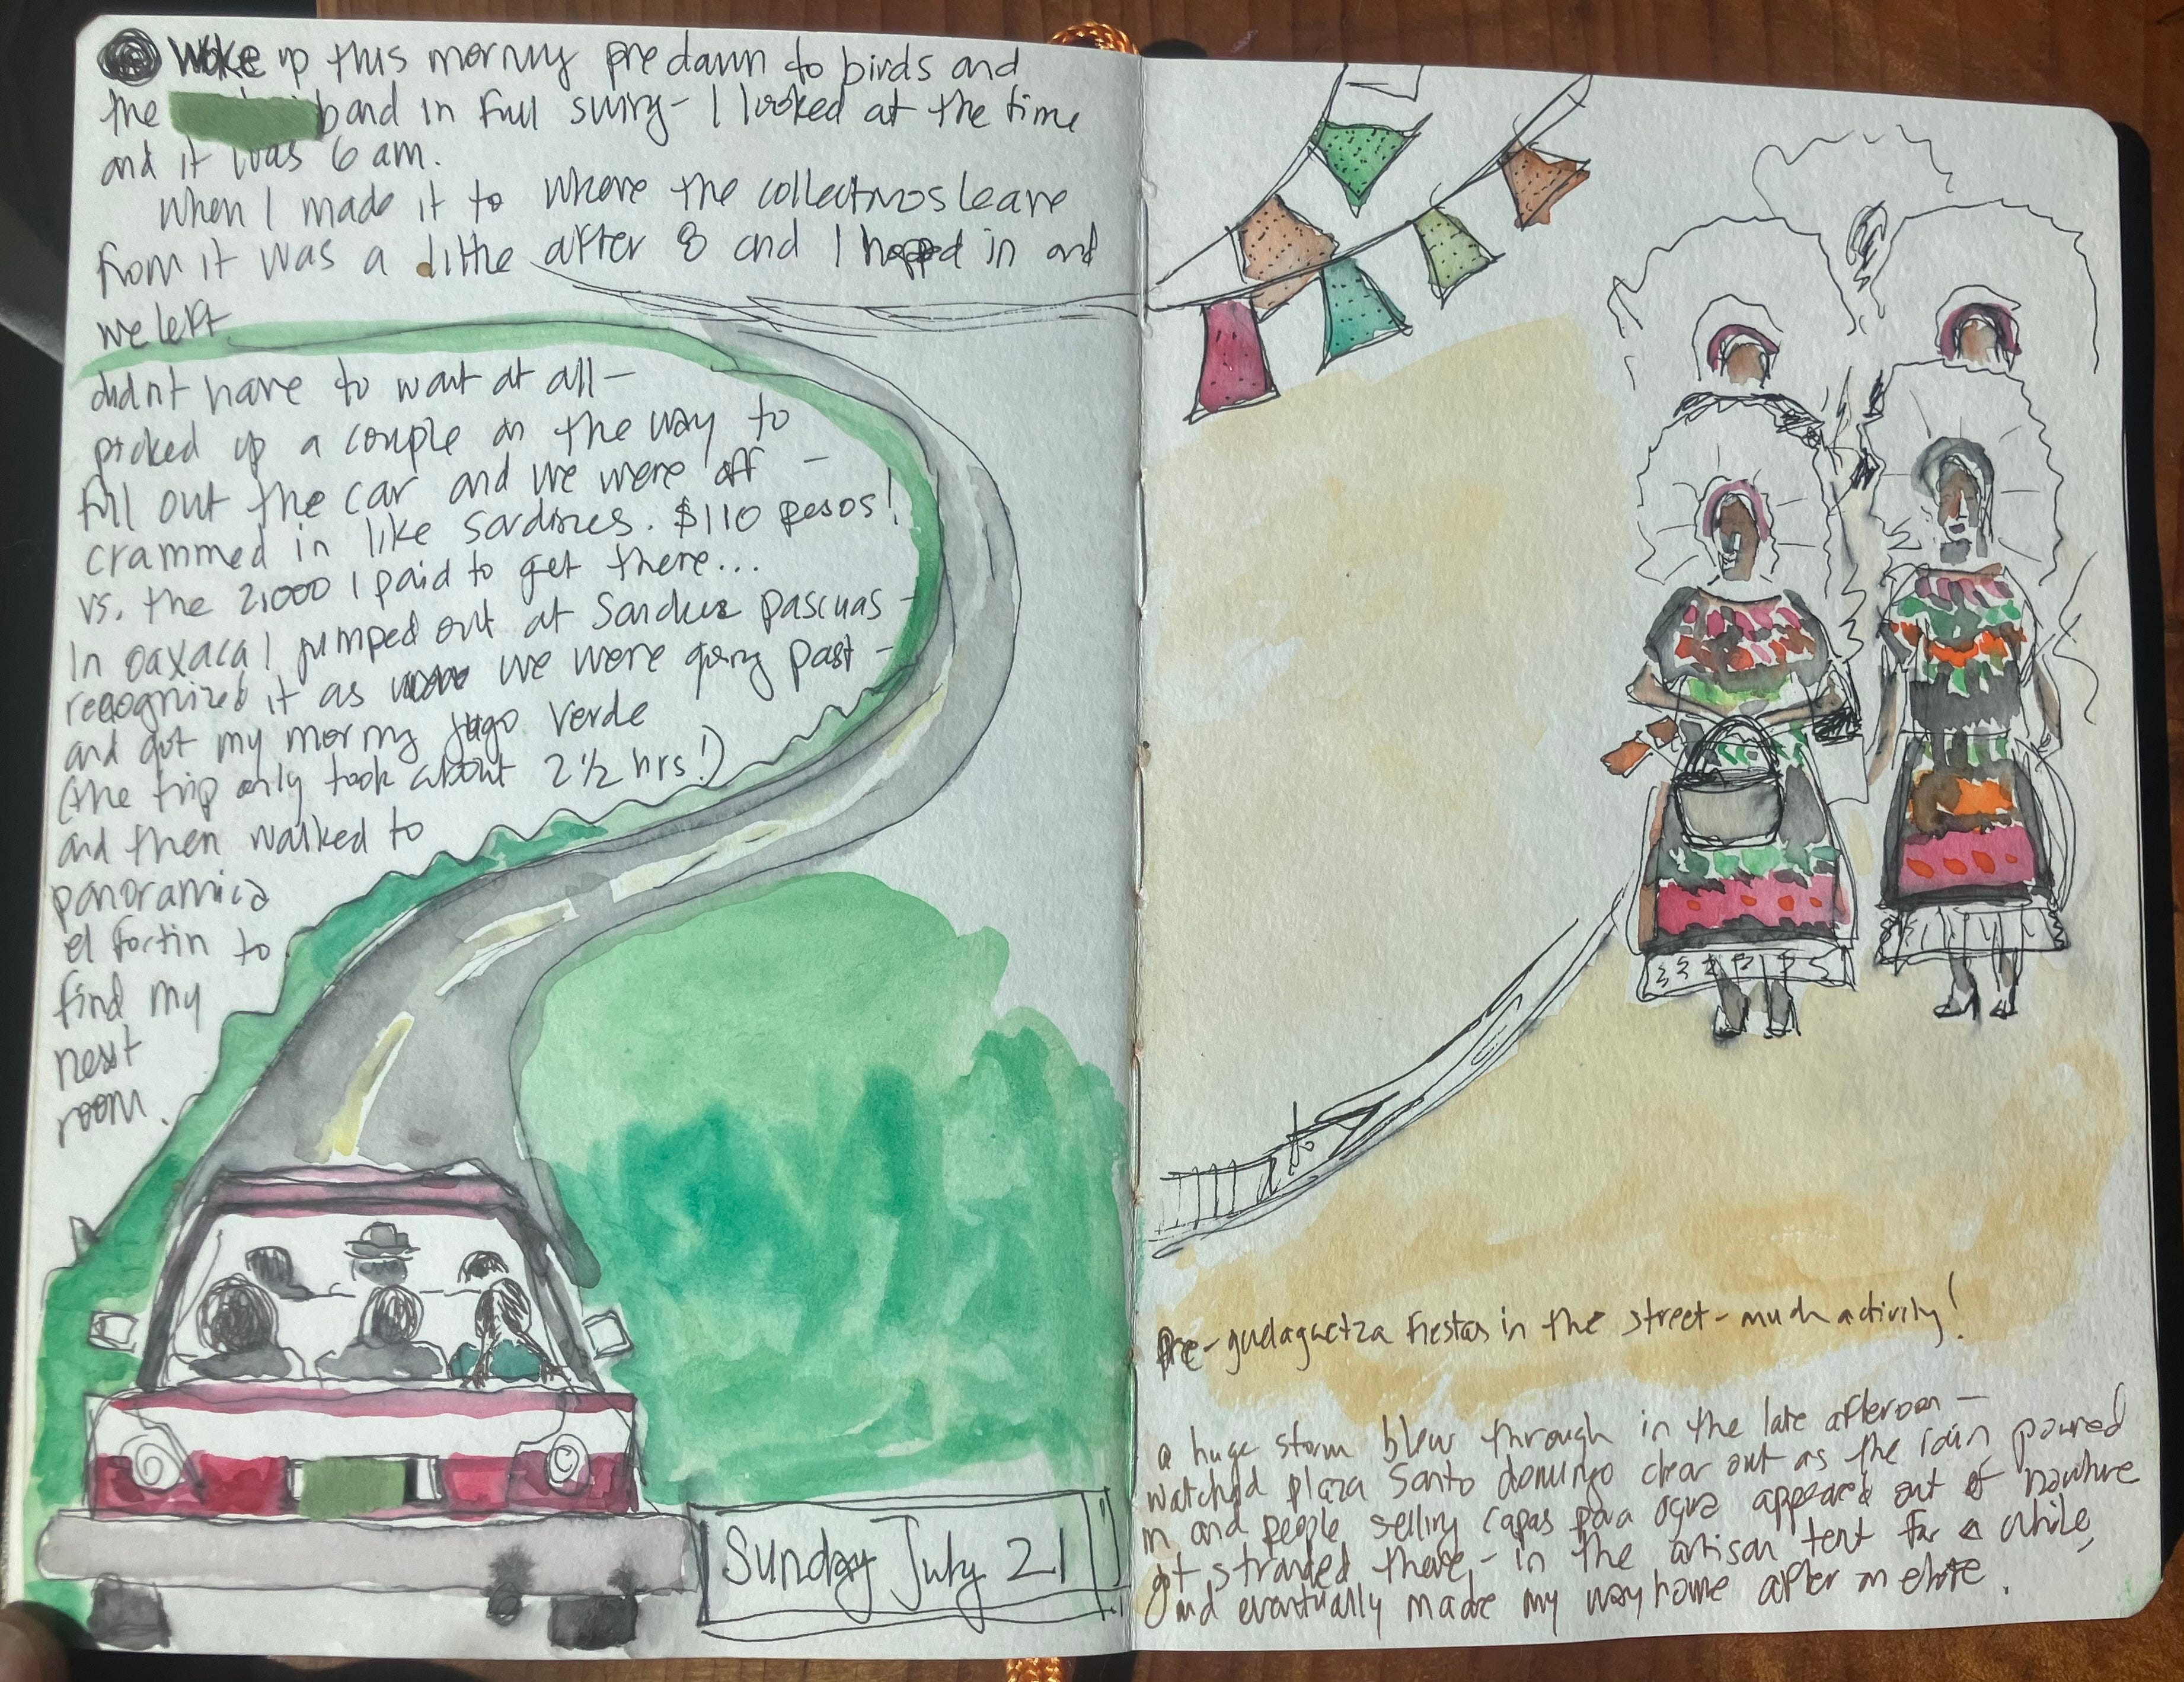 Woke up this morning pre dawn to birds and
the band in full swing - I looked at the time
and it was 6 am.
When I made it to where the collectivos leave
from it was a little after 8 and I hopped in and
we left
didn't have to wait at all -
picked up a couple on the way to
fill out the car and we were off -
crammed in like sardines. $110 pesos!
vs. the 2,000 I paid to get there...
In oaxaca I jumped out at pascuas -
recognized it as we were going past -
and got my morning jugo verde
(the trip only took about 2 1/2 hrs!)
and then walked to
panoramica
el fortin to
find my
next
room.
Sunday July 21
Pre-guelaguetza fiestas in the street - much activity!
a huge storm blew through in the late afternoon -
watched plaza Santo domingo clear out as the rain poured
in and people selling capas para agua appeared out of nowhere
got stranded there, - in the artisan tent for a while,
and eventually made my way home after an elote.